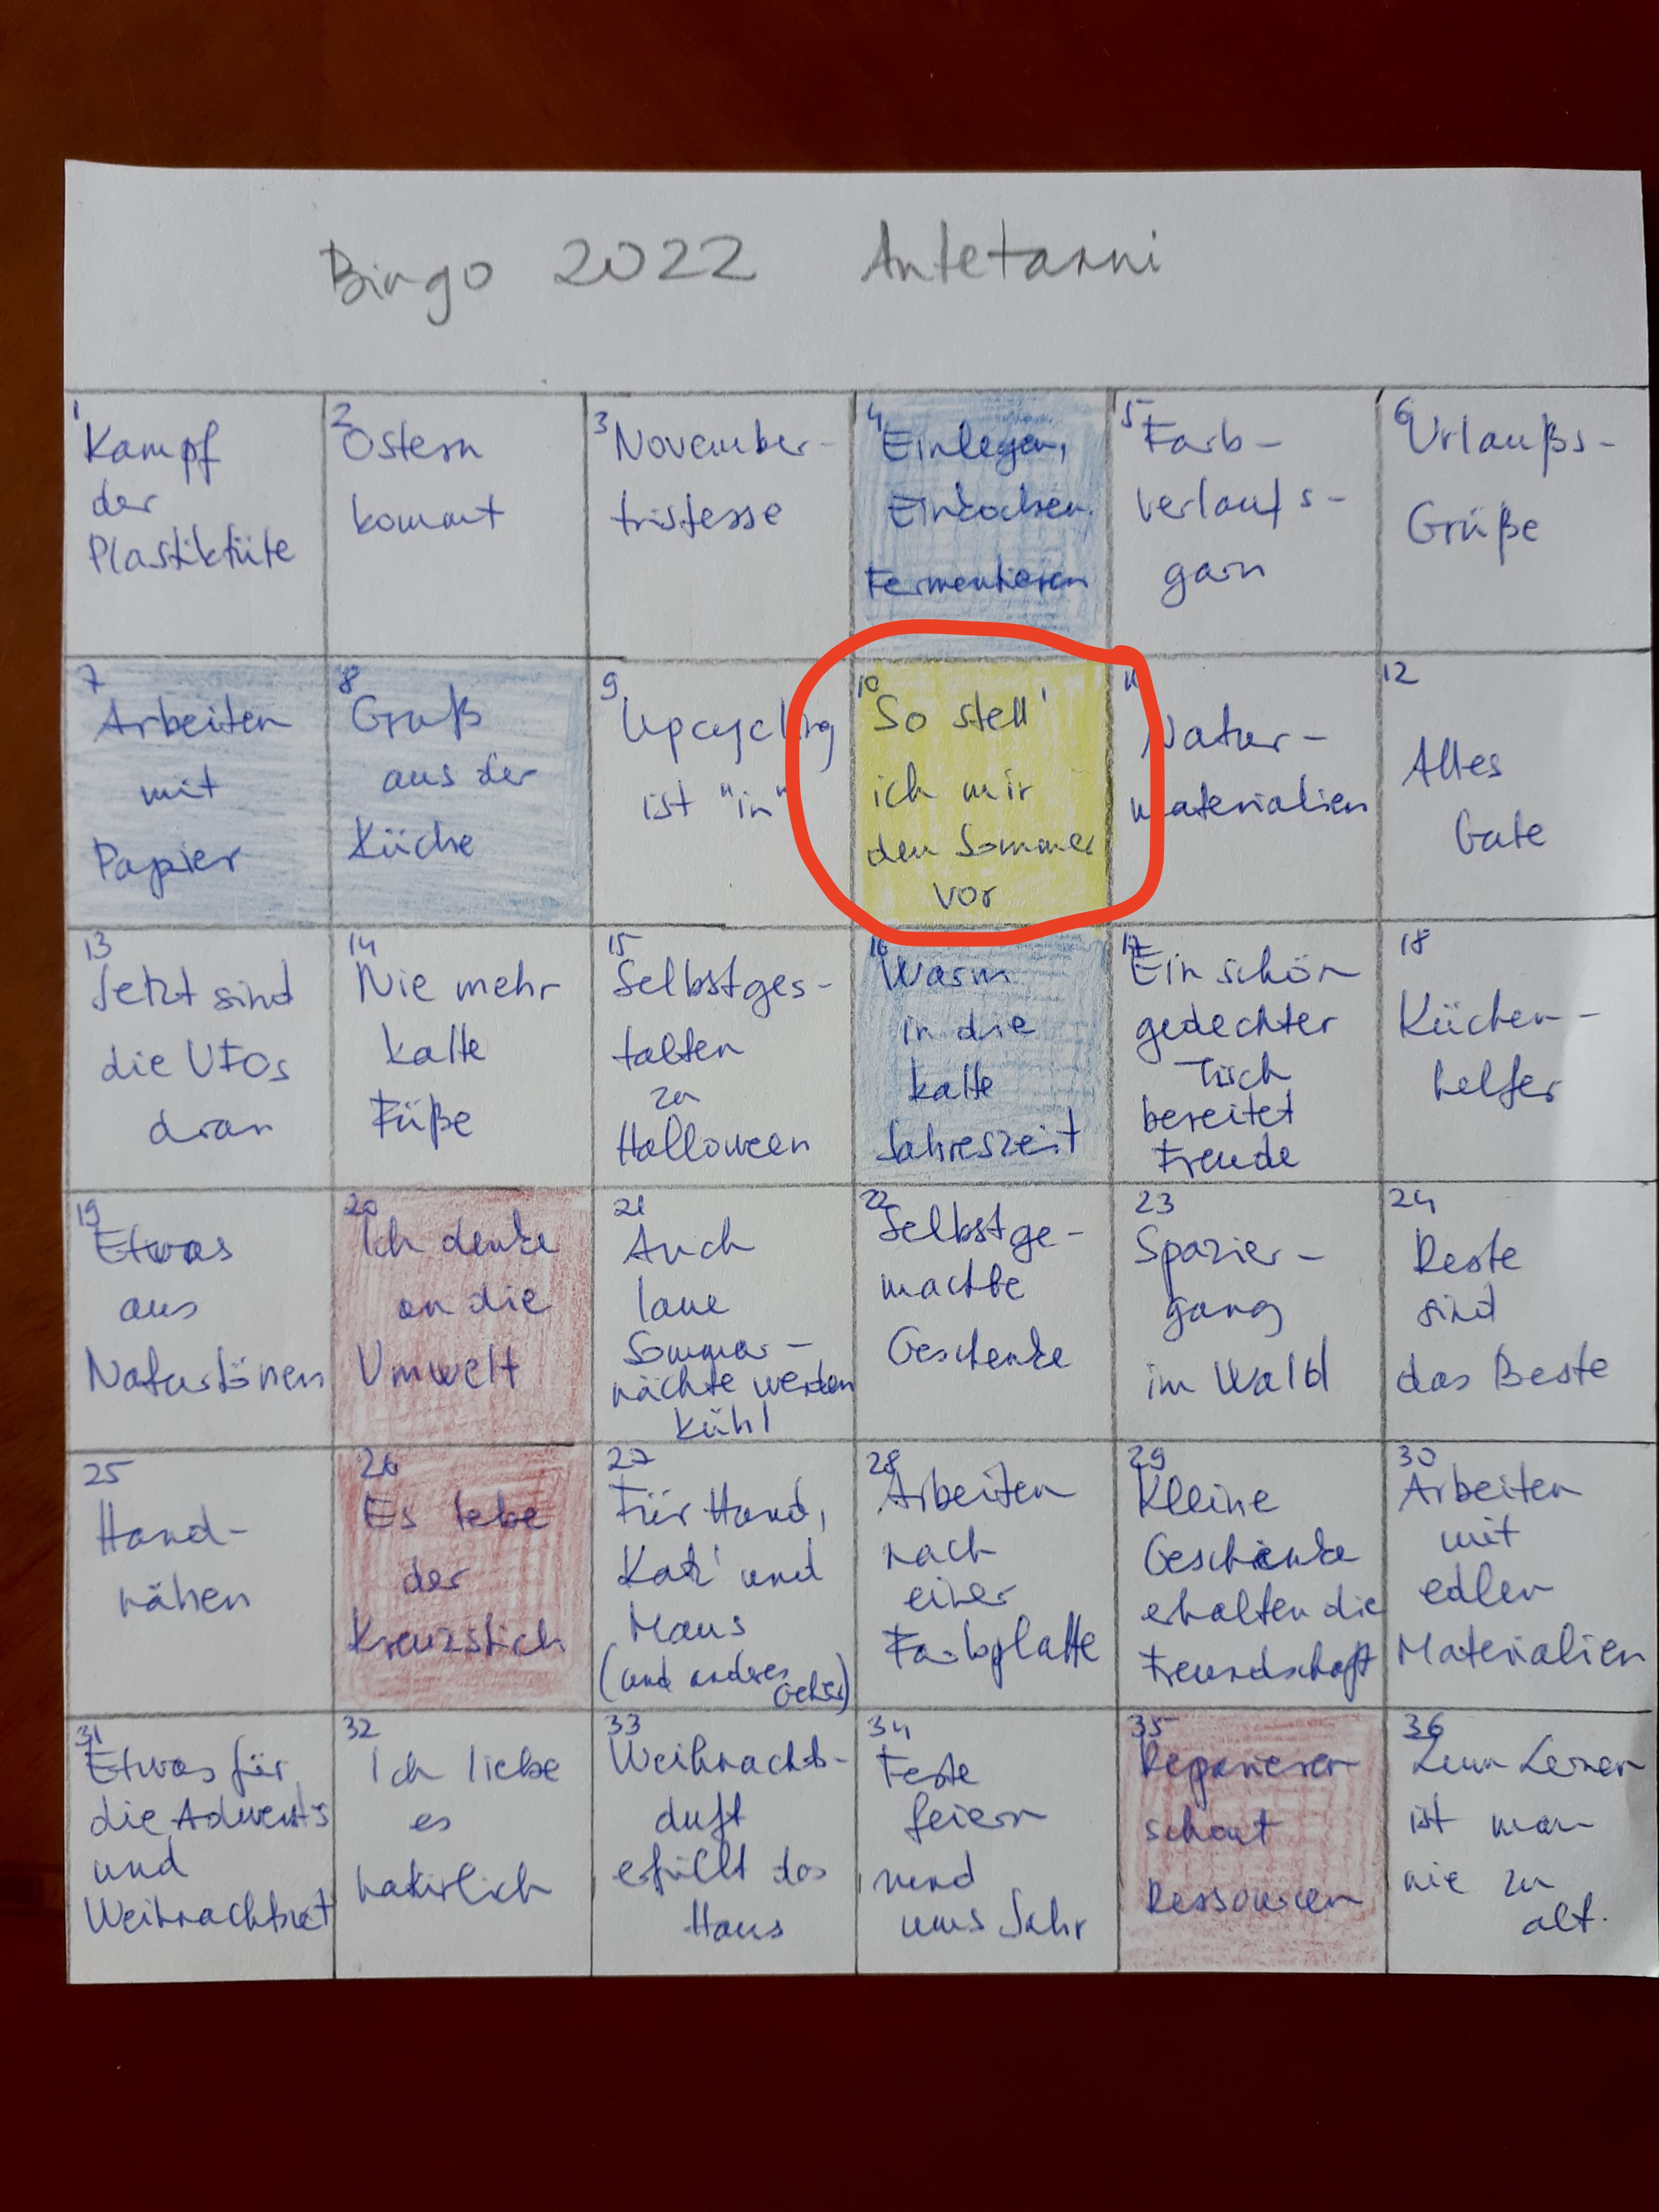 Bingo 2022 Antetanni
1
Kampf
der
Plastiktüte
2
Ostern
kommt
3
November-
tristesse
4
Einlegen,
Einkochen,
Fermentieren
5
Farb-
verlaufs-
garn
6
Urlaußs-
Grüße
7
Arbeiten
mit
Papier
8
Gruß
aus der
Küche
9
Upcycling
ist "in"
10
So stell'
ich mir
den Sommer
vor
11
Natur-
materialien
12
Alles
Gute
13
Jetzt sind
die UFOs
dran
14
Nie mehr
kalte
Füße
15
Selbstges-
talten
zu
Halloween
16
Warm
in die
kalte
Jahreszeit
17
Ein schön
gedechter
Tisch
bereitet
Freude
18
Küchen-
helfer
19
Etwas
aus
Naturtönen
20
Ich denke
an die
Umwelt
21
Auch
laue
Sommer-
nächte werden
kühl
22
Selbstge-
machte
Geschenke
23
Spazier-
gang
im Wald
24
Reste
sind
das Beste
25
Hand-
nähen
26
Es lebe
der
Kreuzstich
27
Für Hund,
Katz' und
Maus
(und anderes
28
Arbeiten
nach
einer
Farbplatte
29
Kleine
Geschenke
erhalten die
Freundschaft
30
Arbeiten
mit
edlen
Materialien
31
Etwas für
die Advents
und
Weihnachtszeit
32
Ich liebe
es
natürlich
33
Weihnachts-
duft
erfüllt das
Haus
34
Feste
feiern
rund
ums Jahr
35
Reparieren
schont
Ressourcen
36
Zum Lernen
ist man
nie zu
alt.